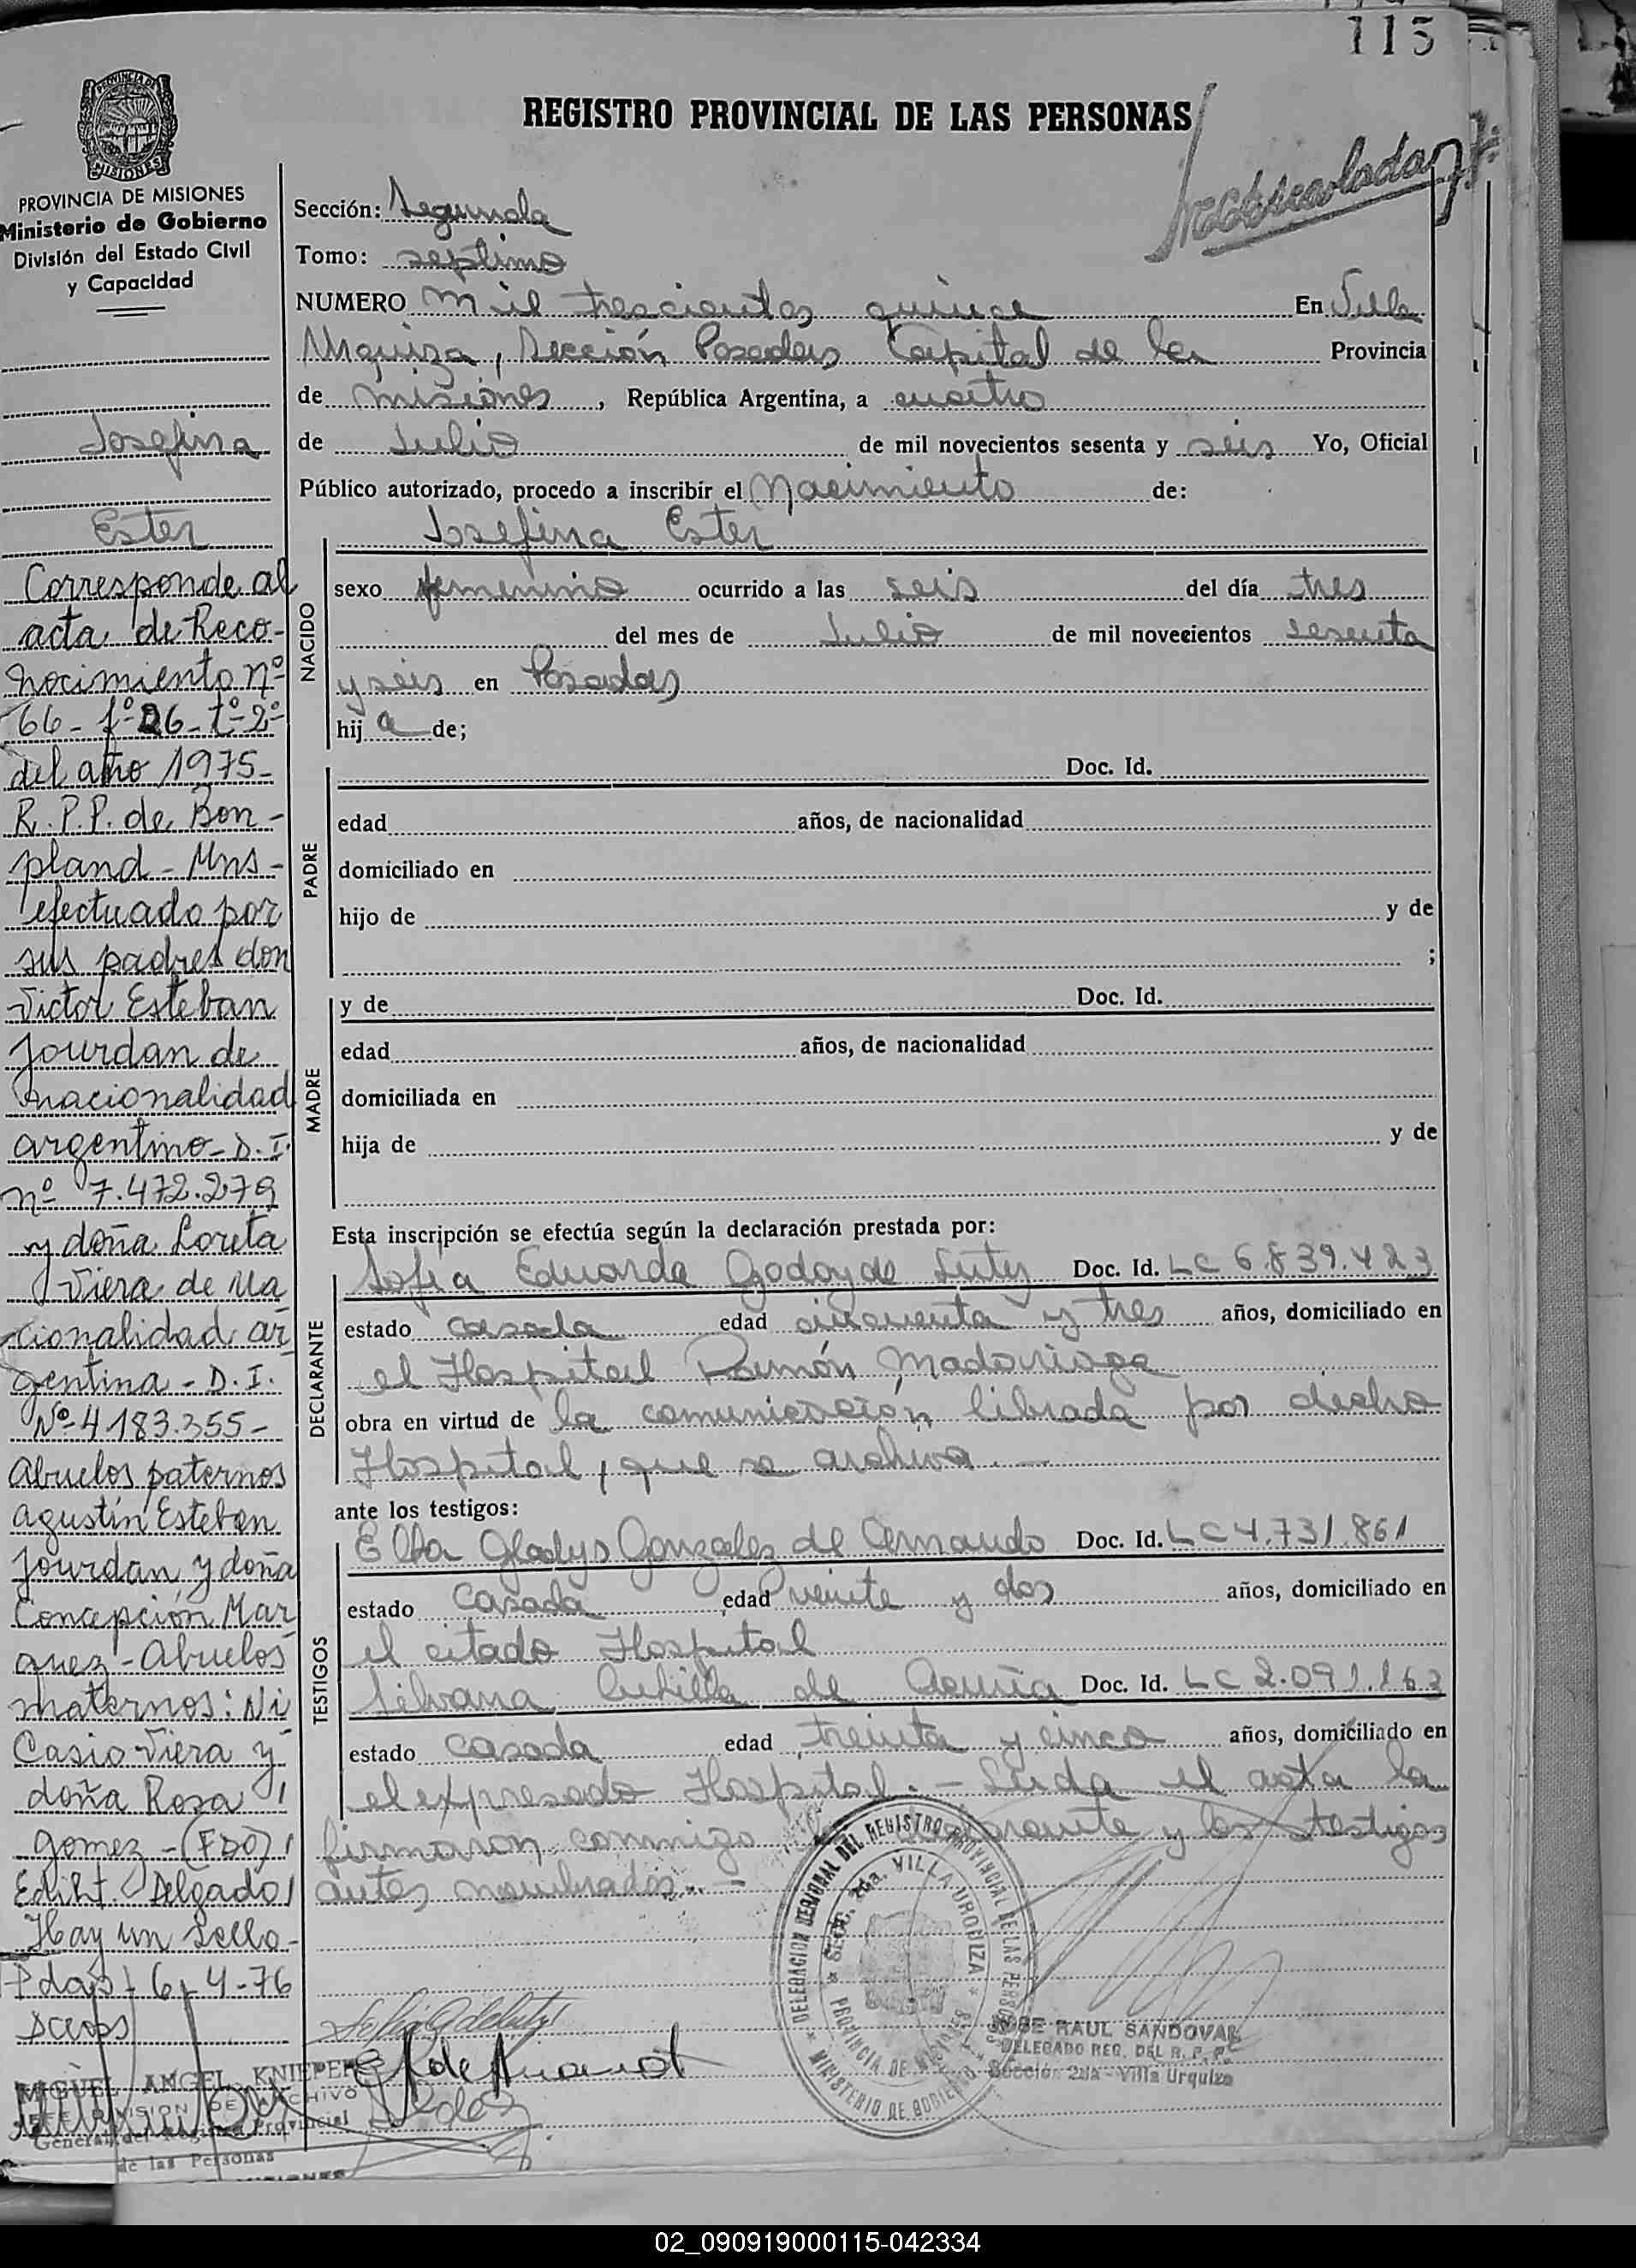 115
REGISTRO PROVINCIAL DE LAS PERSONAS
PROVINCIA DE MISIONES
Ministerio de Gobierno
División del Estado Civil
y Capacidad
Josefina
Ester
Corresponde al
acta de Reco-
nocimiento nº
66- fº 26- tº-2º
del año 1975-
R.P.P. de Bon-
pland - Mns-
efectuado por
sus padres don
Victor Esteban
Jourdan de
nacionalidad
argentino - D.I.
nº 7.472.279
y doña Loreta
Viera de na
cionalidad ar
gentina - D.I.
Nº 4183.355-
Abuelos paternos
Agustín Esteban
Jourdan y doña
Concepción Mar
quez - Abuelos
maternos: Ni
Casio Viera y
doña Rosa
Gomez - (FDO)
Ediht Delgado
Hay un sello-
Pdas - 6-4-76
MIGUEL ANGEL KNIEPER
JEFE DIVISION DE ARCHIVO
General del Registro Provincial
de las Personas
Sección: Segunda
Tomo: septimo
NUMERO mil trescientos quince En Villa
Urquiza, Sección Posadas Capital de la Provincia
de misiones, República Argentina, a cuatro
de Julio de mil novecientos sesenta y seis Yo, Oficial
Público autorizado, procedo a inscribir el Nacimiento de:
Josefina Ester
NACIDO
sexo femenino ocurrido a las seis del día tres
del mes de Julio de mil novecientos sesenta
y seis en Posadas
hija de;
PADRE
Doc. Id.
edad años, de nacionalidad
domiciliado en
hijo de y de
;
MADRE
y de Doc. Id.
edad años, de nacionalidad
domiciliada en
hija de y de
Esta inscripción se efectúa según la declaración prestada por:
DECLARANTE
Sofía Eduarda Godoy de Doc. Id. LC 6.839.423
estado casada edad cincuenta y tres años, domiciliado en
el Hospital Ramón Madariaga
obra en virtud de la comunicación librada por dicho
Hospital, que se archiva.-
ante los testigos:
TESTIGOS
Elba Gladys Gonzalez de Doc. Id. LC 4.731.861
estado casada edad veinte y dos años, domiciliado en
el citado Hospital
Silvana de Acuña Doc. Id. LC 2.091.163
estado casada edad treinta y cinco años, domiciliado en
el expresado Hospital.- Leída el acta la
firmaron conmigo y los testigos
antes nombrados.-
DELEGACION REGIONAL DEL REGISTRO PROVINCIAL DE LAS PERSONAS
SECC. 2da. VILLA URQUIZA
PROVINCIA DE MISIONES
MINISTERIO DE GOBIERNO
JOSE RAUL SANDOVAL
DELEGADO REG. DEL R. P. P.
Sección 2da - Villa Urquiza
02_090919000115-042334